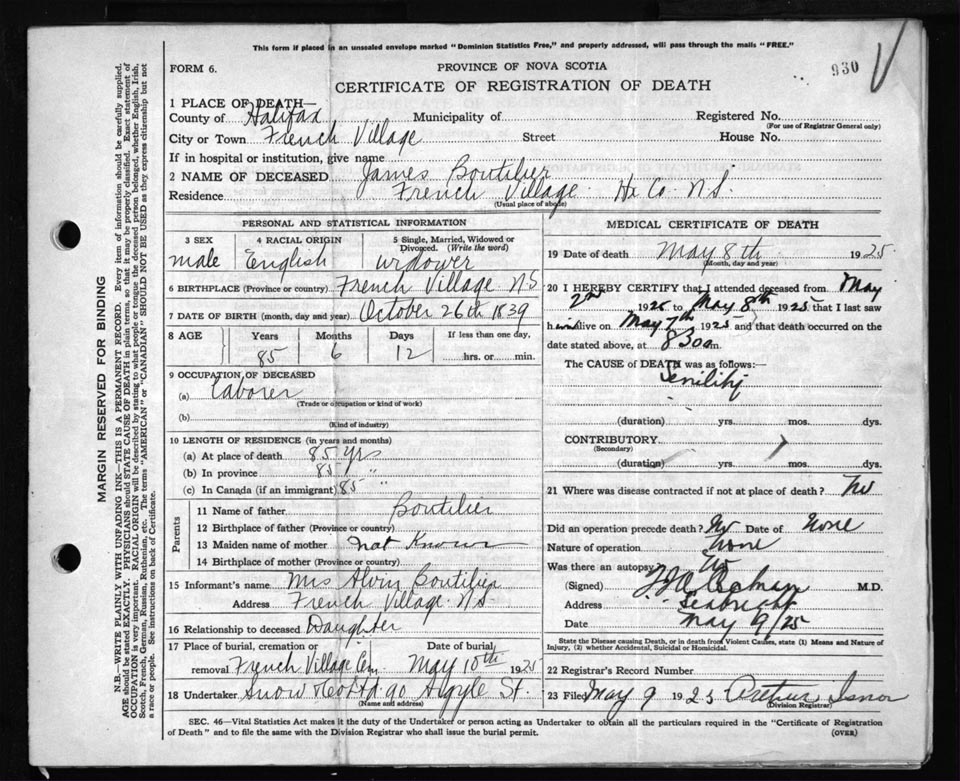 This form if placed in an unsealed envelope marked "Dominion Statistics Free," and properly addressed, will pass through the mails "FREE."
930
FORM 6.
PROVINCE OF NOVA SCOTIA
CERTIFICATE OF REGISTRATION OF DEATH
1 PLACE OF DEATH—
County of Halifax Municipality of Registered No.
(For use of Registrar General only)
City or Town French Village Street House No.
If in hospital or institution, give name
2 NAME OF DECEASED James Boutilier
Residence French Village Hx Co. N.S.
(Usual place of abode)
PERSONAL AND STATISTICAL INFORMATION
3 SEX 4 RACIAL ORIGIN 5 Single, Married, Widowed or Divorced. (Write the word)
male English widower
6 BIRTHPLACE (Province or country) French Village NS
7 DATE OF BIRTH (month, day and year) October 26th 1839
8 AGE Years Months Days If less than one day,
85 6 12 hrs. or min.
9 OCCUPATION OF DECEASED
(a) Laborer
(Trade or occupation or kind of work)
(b)
(Kind of industry)
10 LENGTH OF RESIDENCE (in years and months)
(a) At place of death 85 yrs
(b) In province 85 "
(c) In Canada (if an immigrant) 85 "
Parents
11 Name of father Boutilier
12 Birthplace of father (Province or country)
13 Maiden name of mother not Known
14 Birthplace of mother (Province or country)
15 Informant's name Mrs Alvin Boutilier
Address French Village N.S.
16 Relationship to deceased Daughter
17 Place of burial, cremation or Date of burial
removal French Village Cem. May 10th 1925
18 Undertaker Snow & Co Ltd 90 Argyle St.
(Name and address)
MEDICAL CERTIFICATE OF DEATH
19 Date of death May 8th 1925
(Month, day and year)
20 I HEREBY CERTIFY that I attended deceased from May
2nd 1925 to May 8th 1925 that I last saw
him alive on May 7th 1925 and that death occurred on the
date stated above, at 8 30 a m.
The CAUSE of DEATH was as follows:—
Senility
(duration) yrs. mos. dys.
CONTRIBUTORY
(Secondary)
(duration) yrs. mos. dys.
21 Where was disease contracted if not at place of death?
Did an operation precede death? No Date of None
Nature of operation None
Was there an autopsy? No
(Signed) M.D.
Address Seabright
Date May 9/25
State the Disease causing Death, or in death from Violent Causes, state (1) Means and Nature of Injury, (2) whether Accidental, Suicidal or Homicidal.
22 Registrar's Record Number
23 Filed May 9 1925 Arthur Isnor
(Division Registrar)
SEC. 46—Vital Statistics Act makes it the duty of the Undertaker or person acting as Undertaker to obtain all the particulars required in the "Certificate of Registration
of Death" and to file the same with the Division Registrar who shall issue the burial permit.
(OVER)
MARGIN RESERVED FOR BINDING
N.B.—WRITE PLAINLY WITH UNFADING INK—THIS IS A PERMANENT RECORD. Every item of information should be carefully supplied.
AGE should be stated EXACTLY. PHYSICIANS should STATE CAUSE OF DEATH in plain terms, so that it may be properly classified. Exact statement of
OCCUPATION is very important. RACIAL ORIGIN will be described by stating to what people or tongue the deceased person belonged, whether English, Irish,
Scotch, French, German, Russian, Ruthenian, etc. The terms "AMERICAN" or "CANADIAN" SHOULD NOT BE USED as they express citizenship but not
a race or people. See instructions on back of Certificate.